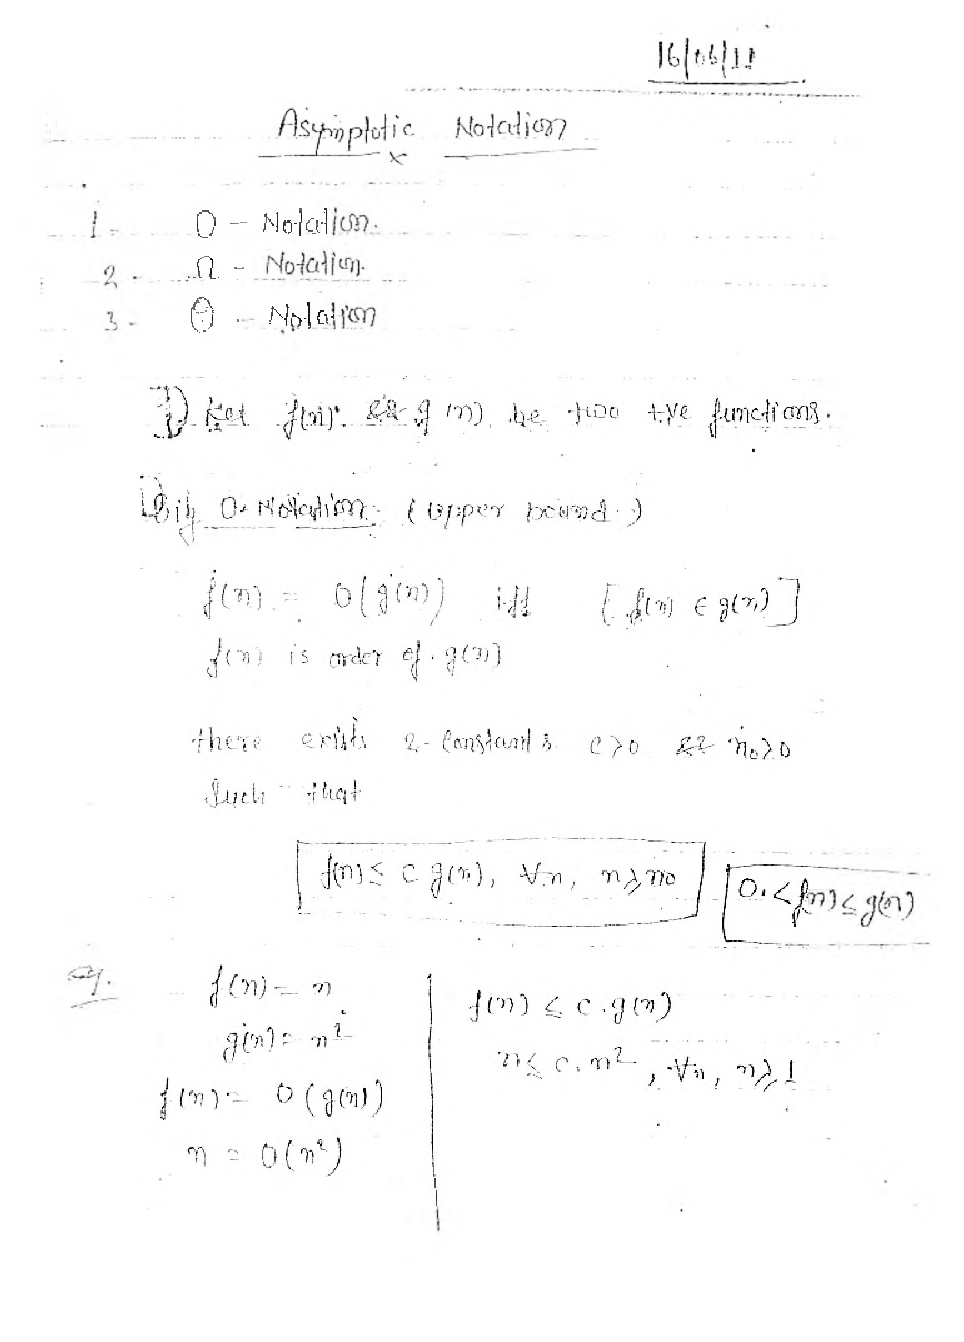 16/06/11
Asymptotic Notation
1- O - Notation.
2- Ω - Notation.
3- Θ - Notation
I) Let f(n) && g(n) be two +ve functions.
Big O-Notation: (upper bound.)
f(n) = O(g(n)) iff [f(n) ∈ g(n)]
f(n) is order of g(n)
there exists 2-constants c>0 && n₀>0
Such that
f(n) ≤ c g(n), ∀n, n≥n₀
0 < f(n) ≤ g(n)
eg.
f(n) = n
g(n) = n²
f(n) = O(g(n))
n = O(n²)
f(n) ≤ c.g(n)
n ≤ c.n², ∀n, n≥1